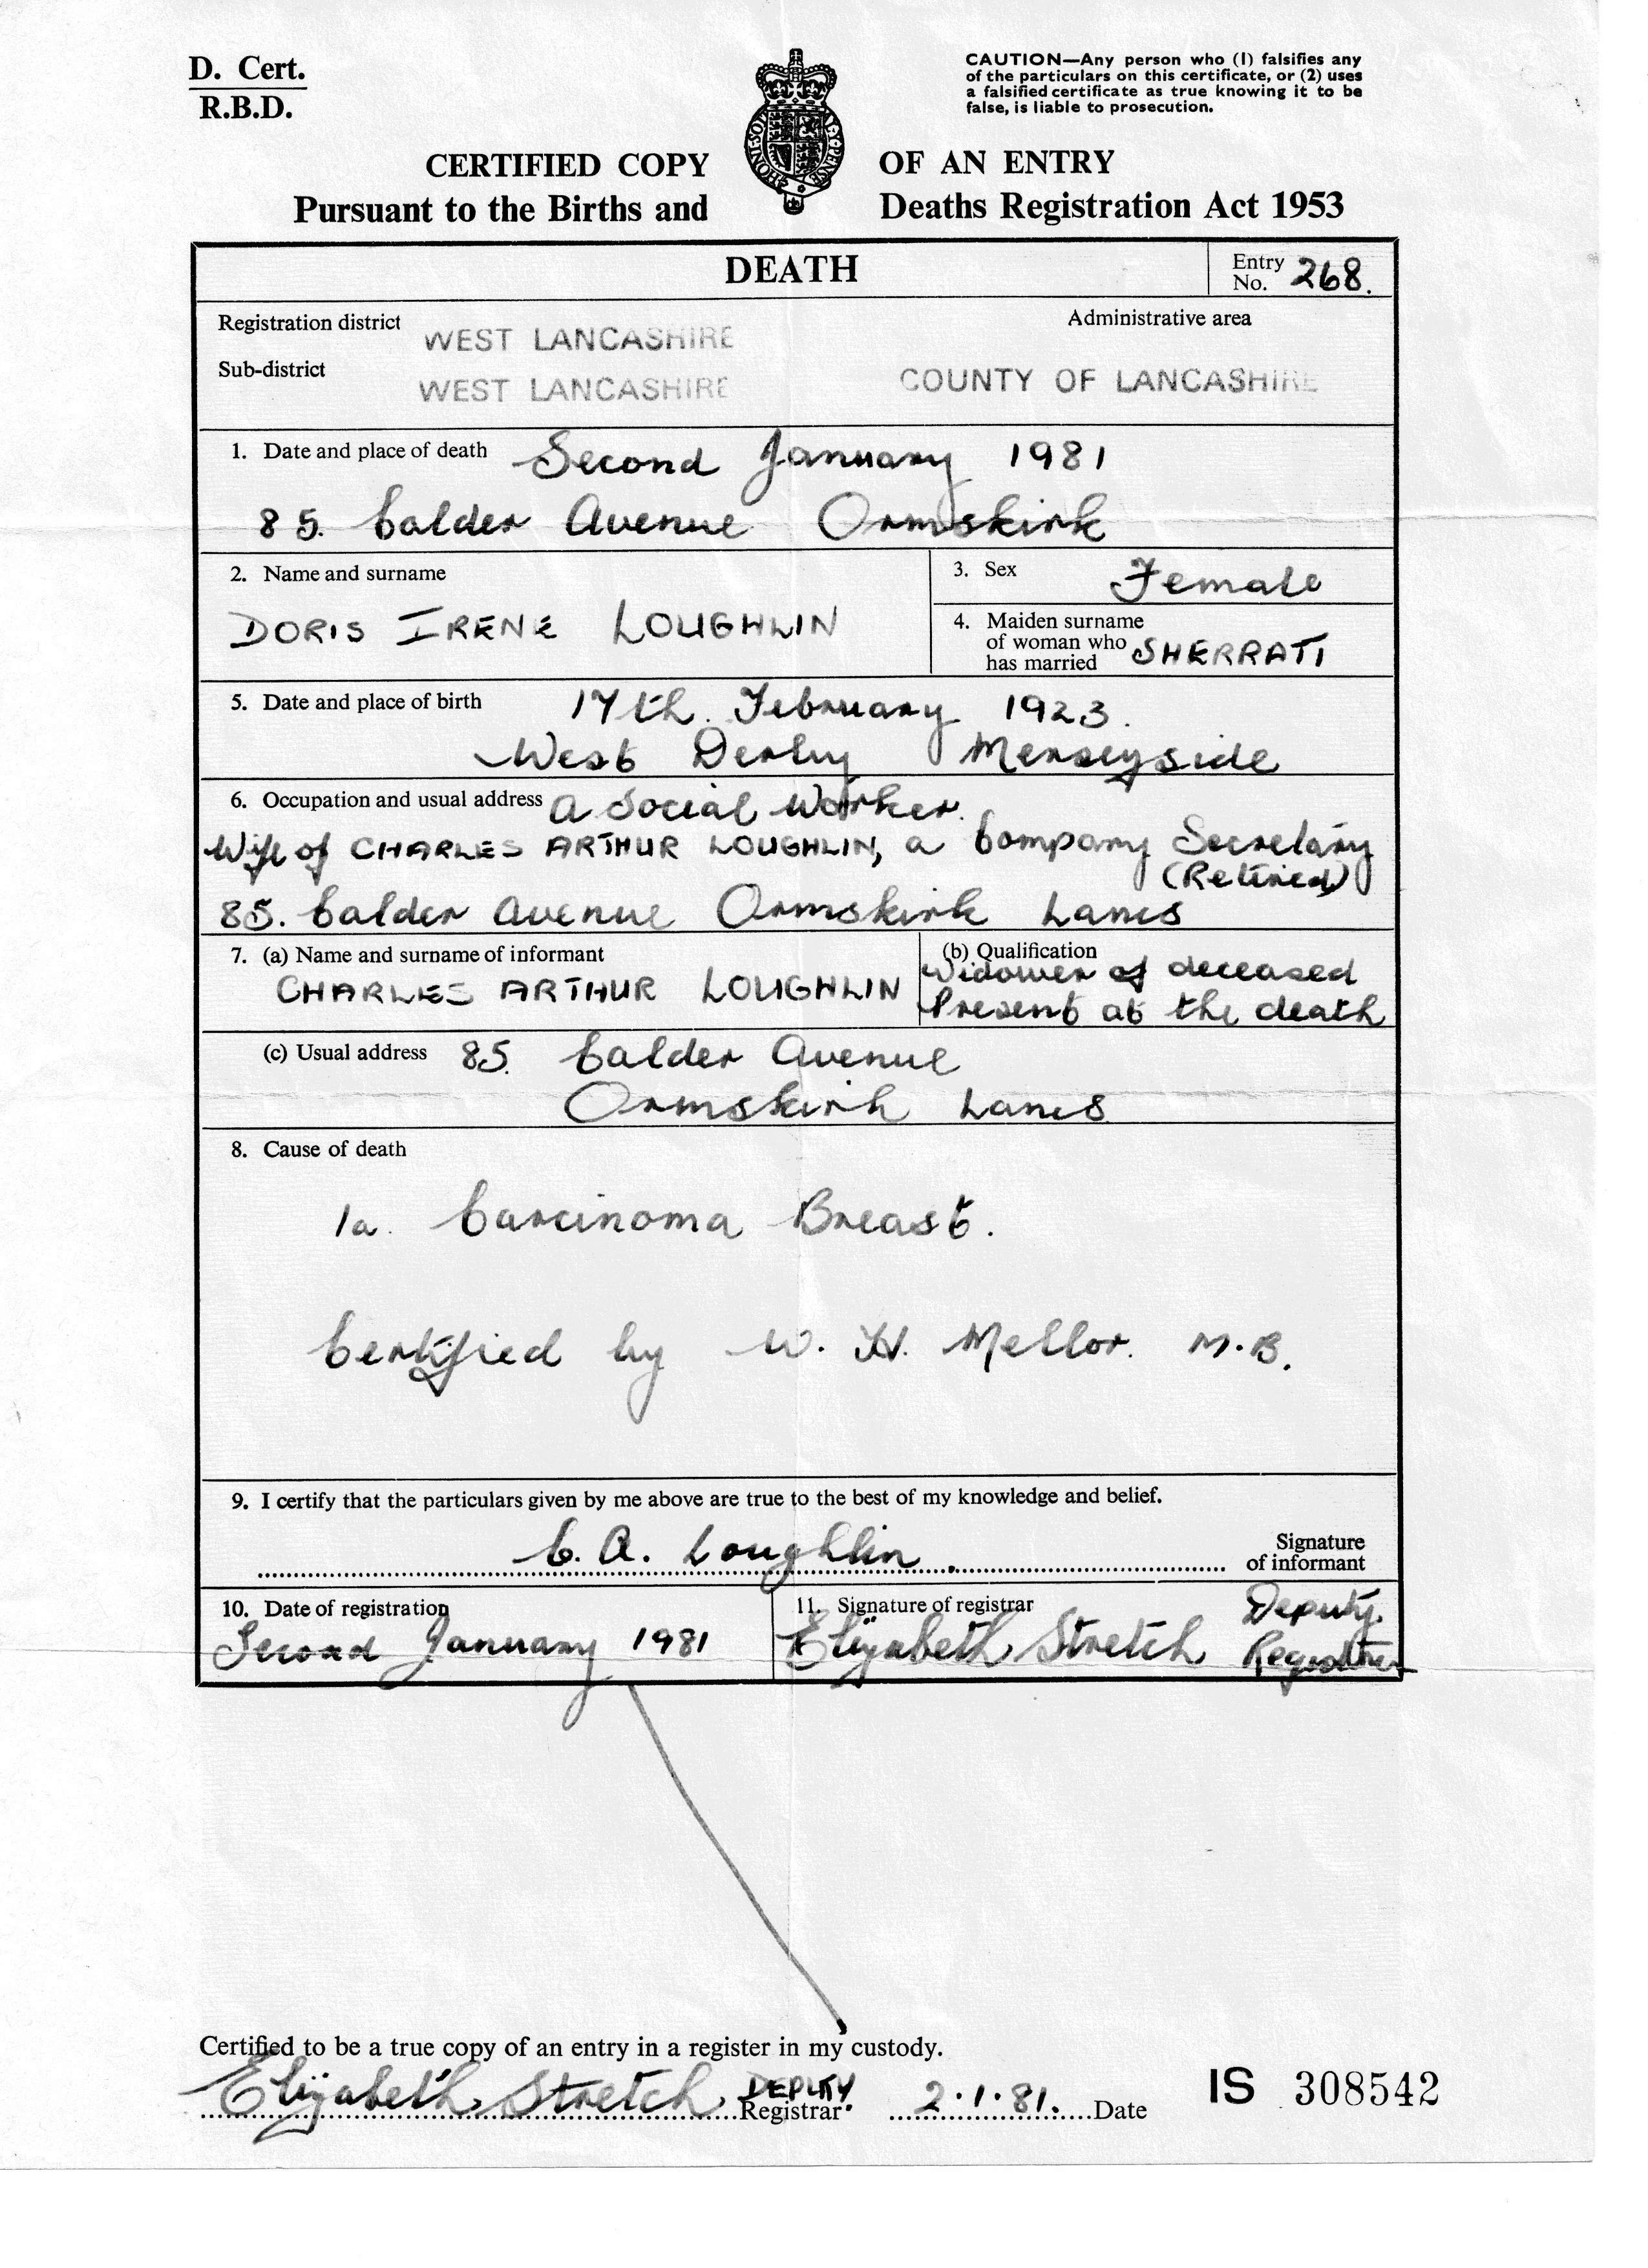 D. Cert.
R.B.D.
CAUTION—Any person who (1) falsifies any
of the particulars on this certificate, or (2) uses
a falsified certificate as true knowing it to be
false, is liable to prosecution.
CERTIFIED COPY OF AN ENTRY
Pursuant to the Births and Deaths Registration Act 1953
DEATH
Entry No. 268.
Registration district WEST LANCASHIRE
Administrative area
Sub-district WEST LANCASHIRE
COUNTY OF LANCASHIRE
1. Date and place of death Second January 1981
85. Calder Avenue Ormskirk
2. Name and surname
DORIS IRENE LOUGHLIN
3. Sex Female
4. Maiden surname
of woman who
has married SHERRATT
5. Date and place of birth 17th. February 1923.
West Derby Merseyside
6. Occupation and usual address A Social Worker.
Wife of CHARLES ARTHUR LOUGHLIN, a Company Secretary
(Retired)
85. Calder Avenue Ormskirk Lancs
7. (a) Name and surname of informant
CHARLES ARTHUR LOUGHLIN
(b) Qualification
Widower of deceased
Present at the death
(c) Usual address 85. Calder Avenue
Ormskirk Lancs
8. Cause of death
1a. Carcinoma Breast.
Certified by W. H. Mellor. M.B.
9. I certify that the particulars given by me above are true to the best of my knowledge and belief.
C. A. Loughlin
Signature
of informant
10. Date of registration
Second January 1981
11. Signature of registrar
Elizabeth Stretch Deputy.
Registrar
Certified to be a true copy of an entry in a register in my custody.
Elizabeth Stretch DEPUTY Registrar. 2.1.81. Date
IS 308542